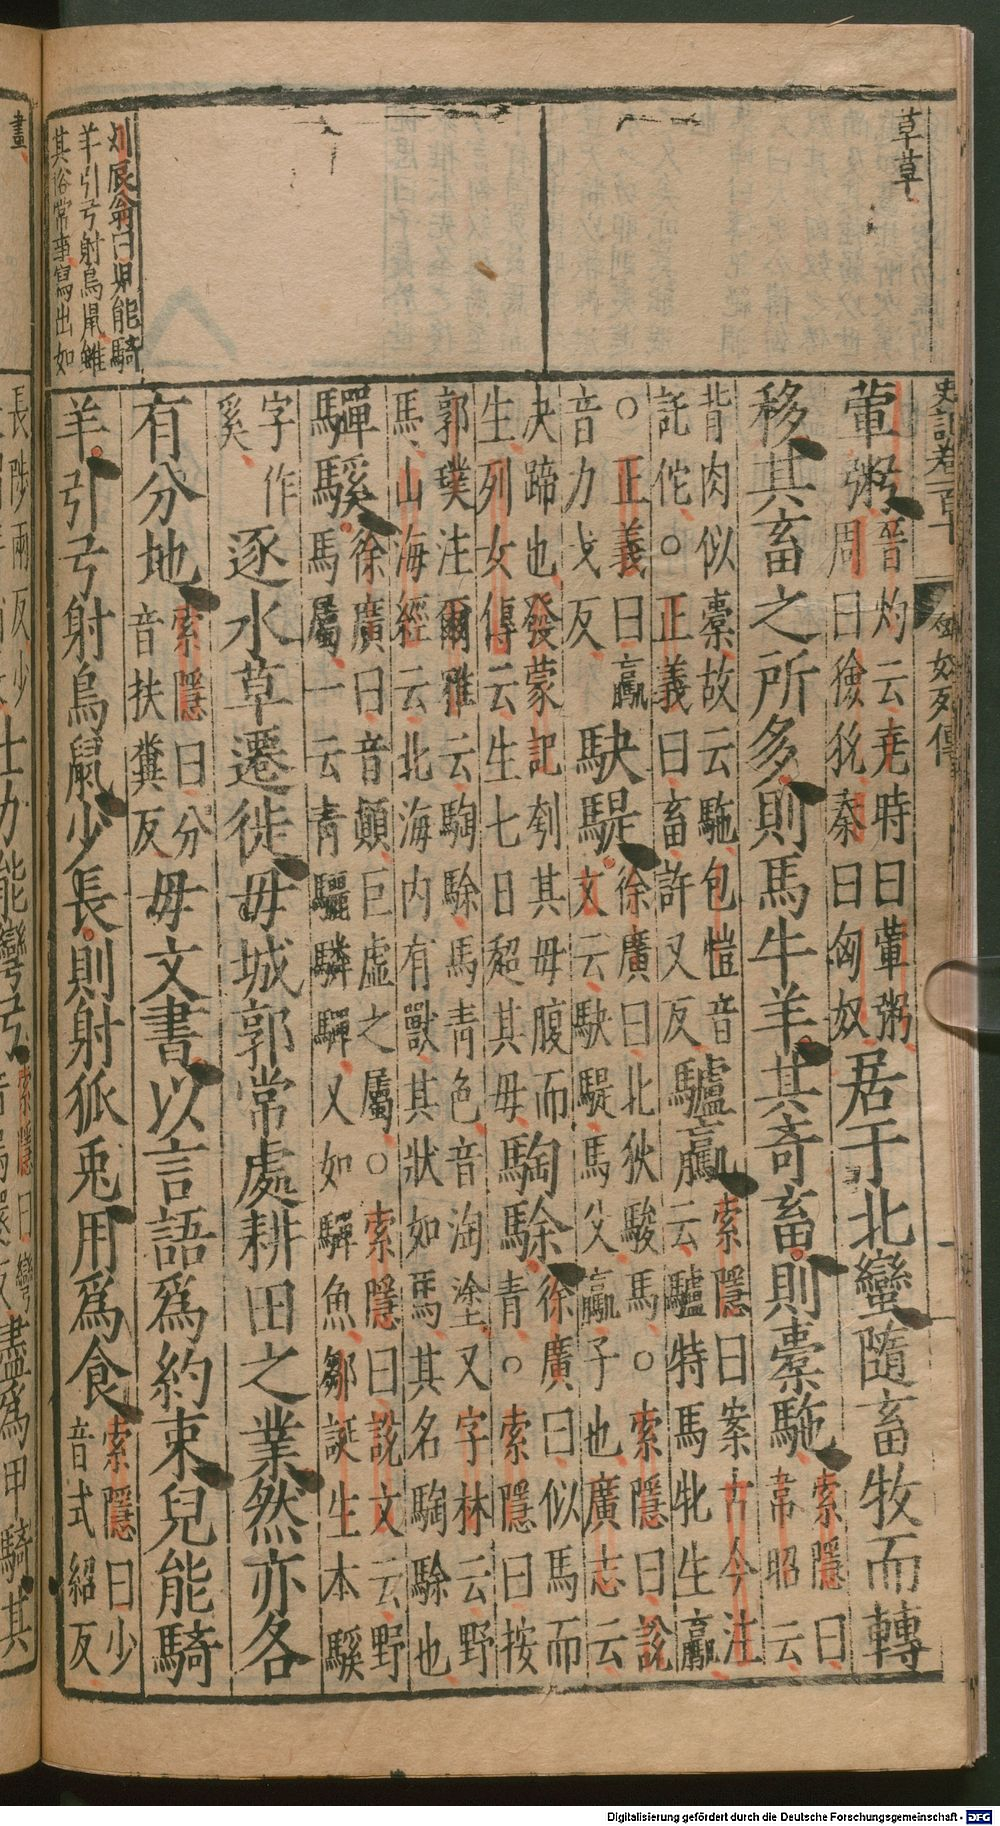 草草
史記卷一百十 匈奴列傳 一
葷粥晉灼云堯時曰葷粥周曰獫狁秦曰匈奴居于北蠻隨畜牧而轉
移其畜之所多則馬牛羊其奇畜則橐駞索隱曰韋昭云
背肉似橐故云駞包愷音託佗○正義曰畜許又反驢驘索隱曰案古今注云驢特馬牝生驘
○正義曰驘音力戈反駃騠徐廣曰北狄駿馬○索隱曰說文云駃騠馬父驘子也廣志云
决蹄也發蒙記刳其母腹而生列女傳云生七日超其母騊駼徐廣曰似馬而青○索隱曰按
郭璞注爾雅云騊駼馬青色音淘塗又字林云野馬山海經云北海内有獸其狀如馬其名騊駼也
驒騱徐廣曰音顛巨虛之屬○索隱曰說文云野馬屬一云青驪驎驒又如驒魚鄒誕生本騱
字作奚逐水草遷徙毋城郭常處耕田之業然亦各
有分地索隱曰分音扶糞反毋文書以言語爲約束兒能騎
羊引弓射鳥鼠少長則射狐兎用爲食索隱曰少音式紹反
刘辰翁曰児能騎
羊引弓射鳥鼠雖
其俗常事寫出如
畫
長陟兩反少
士力能彎弓索隱曰彎音烏還反盡爲甲騎其
Digitalisierung gefördert durch die Deutsche Forschungsgemeinschaft - DFG